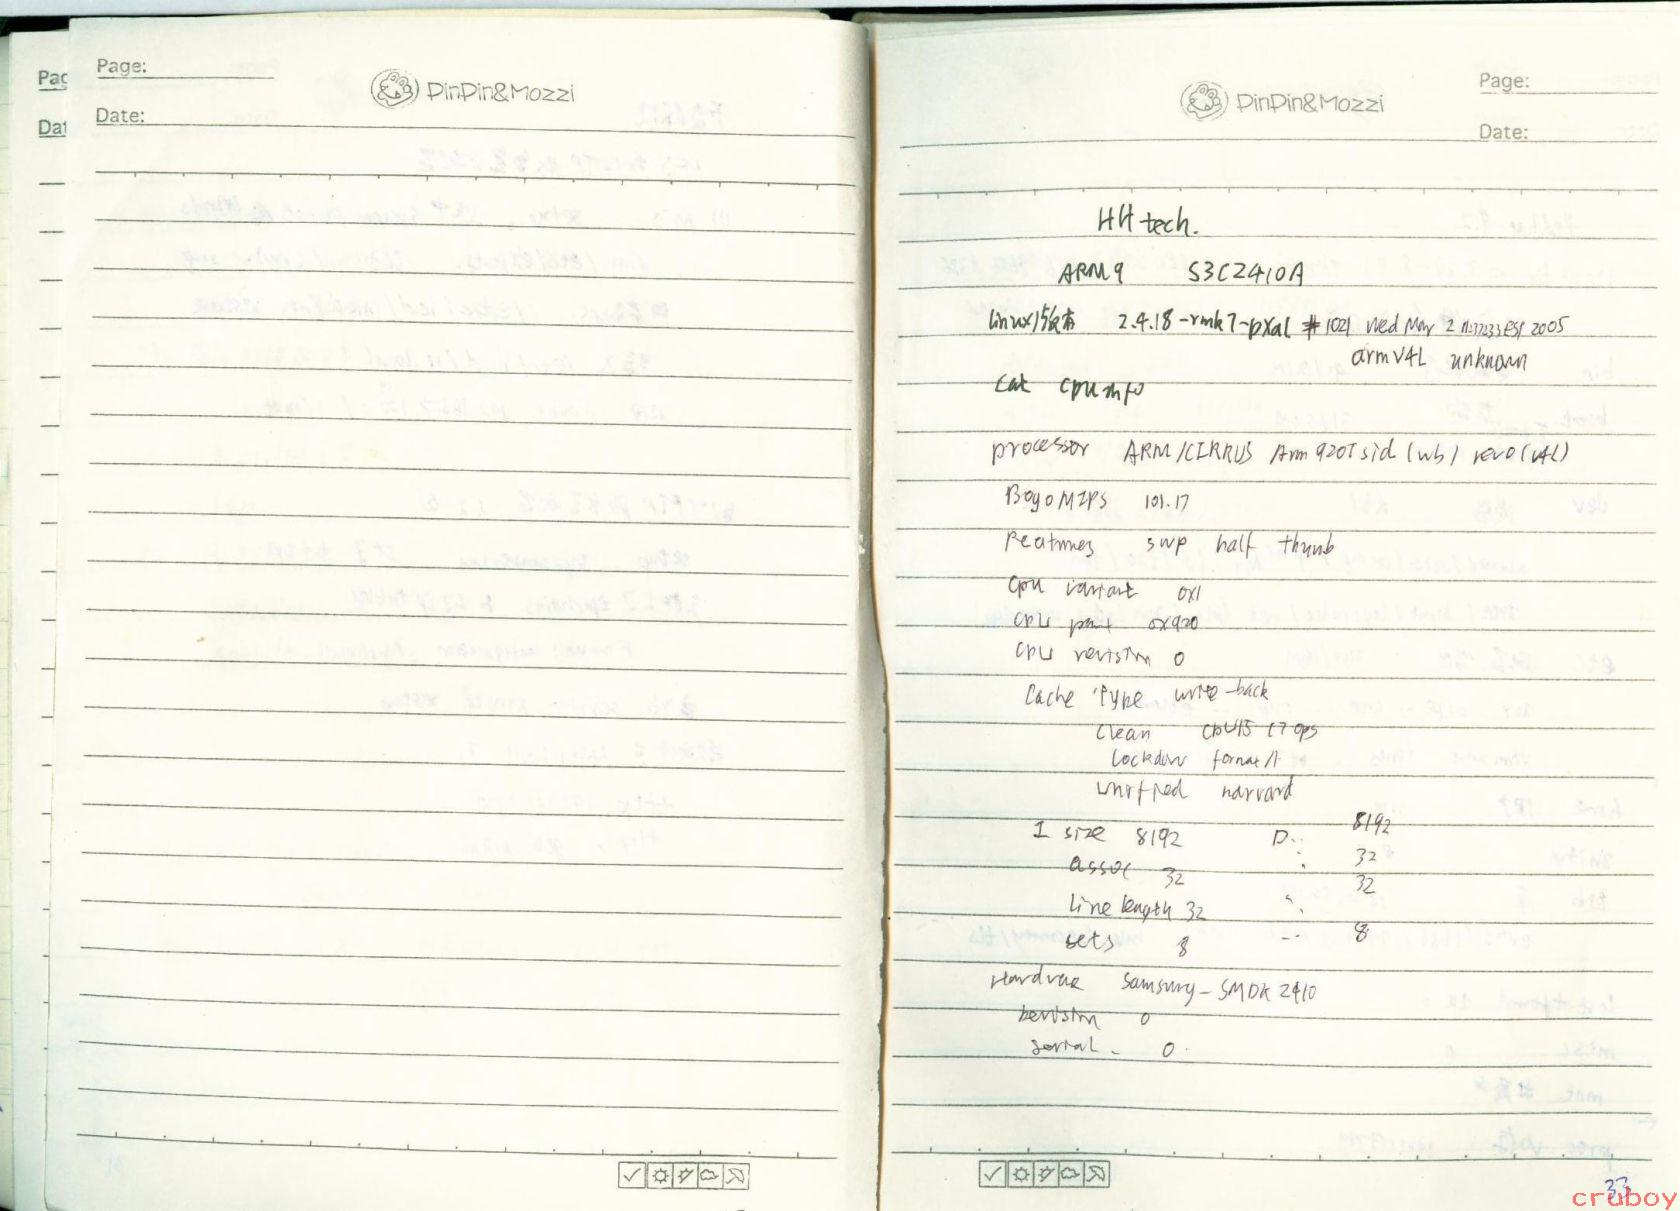 Pag
Dat
Page:
PinPin&Mozzi
Date:
PinPin&Mozzi
Page:
Date:
HH tech.
ARM9 S3C2410A
linux版本 2.4.18-rmk7-pxa1 #1021 Wed May 2 2005
armv4L unknown
cat cpuinfo
processor ARM/CIRRUS Arm920Tsid (wb) rev0 (v4L)
BogoMIPS 101.17
Features swp half thumb
cpu variant 0x1
cpu part 0x920
cpu revision 0
Cache Type write-back
clean cpu15 c7 ops
Lockdow format A
unified harvard
I size 8192 D.. 8192
assoc 32 32
line length 32 32
sets 8 8
Hardware Samsung-SMDK2410
revision 0
serial - 0.
33
cruboy